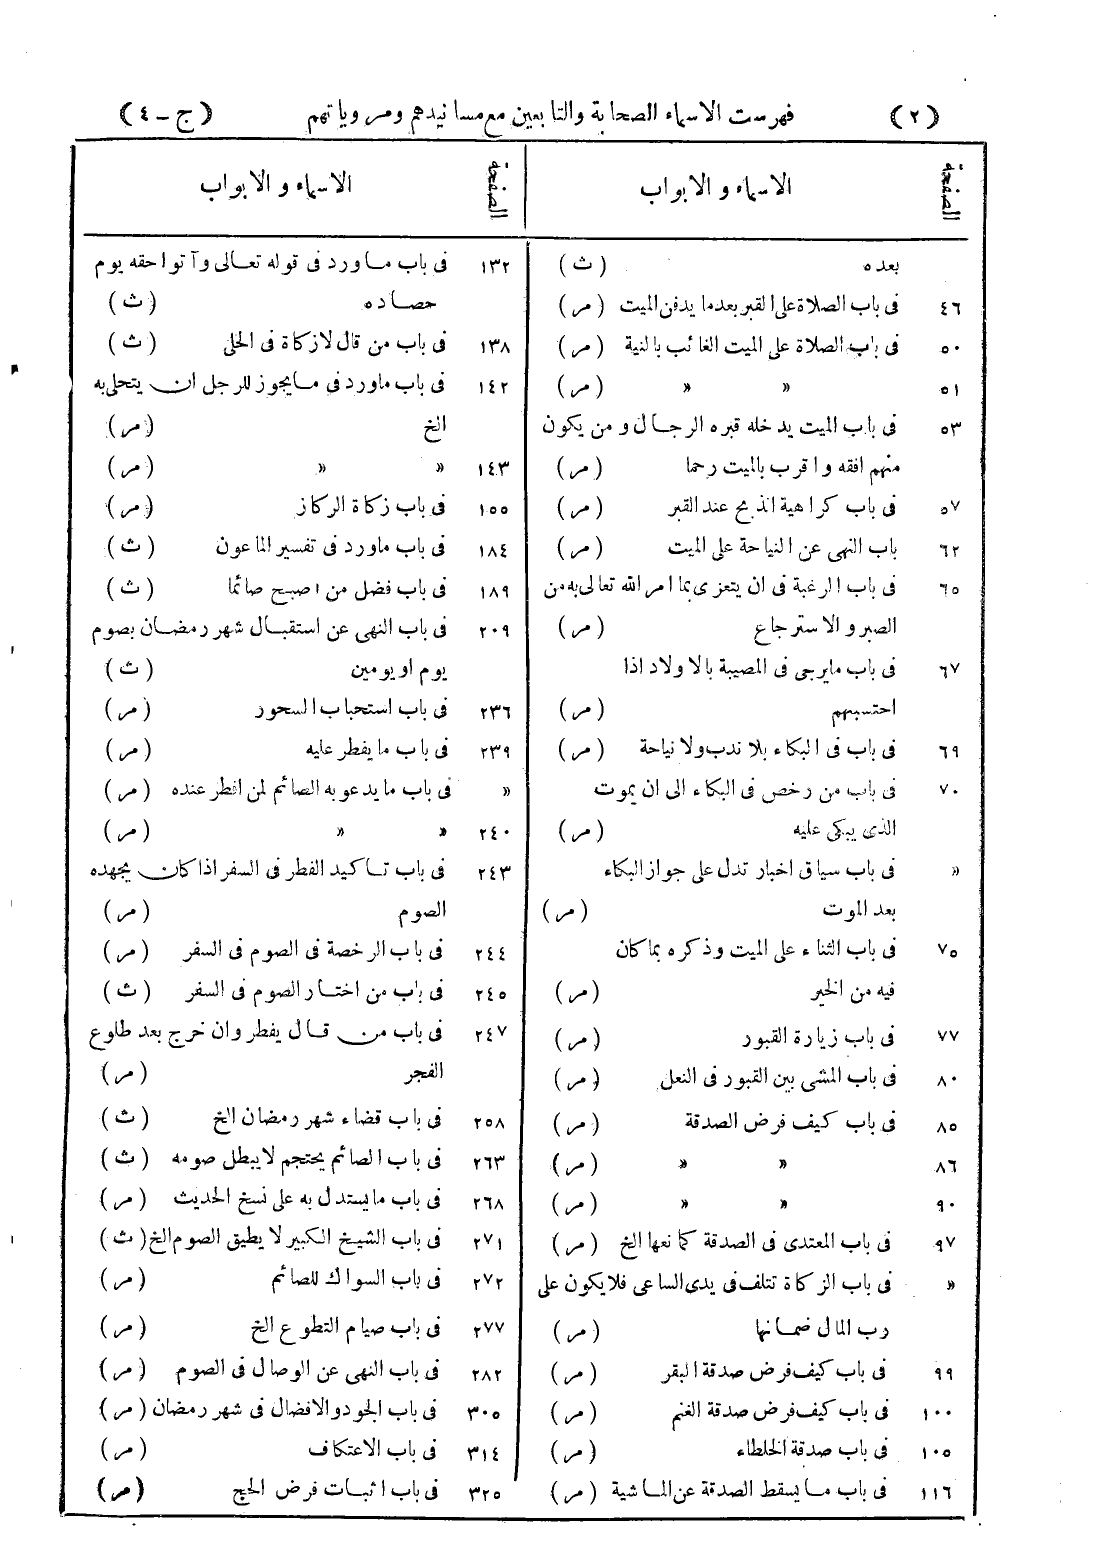 (٢) فهرست الاسماء الصحابة والتابعين مع مسانيدهم ومروياتهم (ج - ٤)
الصفحة الاسماء و الابواب
بعده (ث)
٤٦ فى باب الصلاة على القبر بعد ما يدفن الميت (مر)
٥٠ فى باب الصلاة على الميت الغائب بالنية (مر)
٥١ » » (مر)
٥٣ فى باب الميت يدخله قبره الرجال و من يكون
منهم افقه و اقرب بالميت رحما (مر)
٥٧ فى باب كراهية الذبح عند القبر (مر)
٦٢ باب النهى عن النياحة على الميت (مر)
٦٥ فى باب الرغبة فى ان يتعزى بما امر الله تعالى به من
الصبر و الاسترجاع (مر)
٦٧ فى باب مايرجى فى المصيبة بالاولاد اذا
احتسبهم (مر)
٦٩ فى باب فى البكاء بلا ندب ولا نياحة (مر)
٧٠ فى باب من رخص فى البكاء الى ان يموت
الذى يبكى عليه (مر)
» فى باب سياق اخبار تدل على جواز البكاء
بعد الموت (مر)
٧٥ فى باب الثناء على الميت وذكره بما كان
فيه من الخير (مر)
٧٧ فى باب زيارة القبور (مر)
٨٠ فى باب المشى بين القبور فى النعل (مر)
٨٥ فى باب كيف فرض الصدقة (مر)
٨٦ » » (مر)
٩٠ » » (مر)
٩٧ فى باب المعتدى فى الصدقة كمانعها الخ (مر)
» فى باب الزكاة تتلف فى يدى الساعى فلا يكون على
رب المال ضمانها (مر)
٩٩ فى باب كيف فرض صدقة البقر (مر)
١٠٠ فى باب كيف فرض صدقة الغنم (مر)
١٠٥ فى باب صدقة الخلطاء (مر)
١١٦ فى باب ما يسقط الصدقة عن الماشية (مر)
الصفحة الاسماء و الابواب
١٣٢ فى باب ماورد فى قوله تعالى وآتوا حقه يوم
حصاده (ث)
١٣٨ فى باب من قال لازكاة فى الحلى (ث)
١٤٢ فى باب ماورد فى مايجوز للرجل ان يتحلى به
الخ (مر)
١٤٣ » » (مر)
١٥٥ فى باب زكاة الركاز (مر)
١٨٤ فى باب ماورد فى تفسير الماعون (ث)
١٨٩ فى باب فضل من اصبح صائما (ث)
٢٠٩ فى باب النهى عن استقبال شهر رمضان بصوم
يوم او يومين (ث)
٢٣٦ فى باب استحباب السحور (مر)
٢٣٩ فى باب ما يفطر عليه (مر)
» فى باب ما يدعو به الصائم لمن افطر عنده (مر)
٢٤٠ » » (مر)
٢٤٣ فى باب تاكيد الفطر فى السفر اذا كان يجهده
الصوم (مر)
٢٤٤ فى باب الرخصة فى الصوم فى السفر (مر)
٢٤٥ فى باب من اختار الصوم فى السفر (ث)
٢٤٧ فى باب من قال يفطر وان خرج بعد طلوع
الفجر (مر)
٢٥٨ فى باب قضاء شهر رمضان الخ (ث)
٢٦٣ فى باب الصائم يحتجم لا يبطل صومه (ث)
٢٦٨ فى باب ما يستدل به على نسخ الحديث (مر)
٢٧١ فى باب الشيخ الكبير لا يطيق الصوم الخ (ث)
٢٧٢ فى باب السواك للصائم (مر)
٢٧٧ فى باب صيام التطوع الخ (مر)
٢٨٢ فى باب النهى عن الوصال فى الصوم (مر)
٣٠٥ فى باب الجود والافضال فى شهر رمضان (مر)
٣١٤ فى باب الاعتكاف (مر)
٣٢٥ فى باب اثبات فرض الحج (مر)